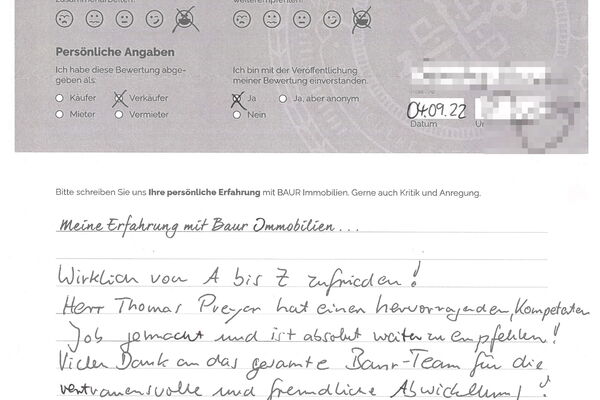 zusammenarbeiten.
weiterempfehlen.
Persönliche Angaben
Ich habe diese Bewertung abge-
geben als:
Käufer Verkäufer
Mieter Vermieter
Ich bin mit der Veröffentlichung
meiner Bewertung einverstanden.
Ja Ja, aber anonym
Nein
04.09.22
Datum
Bitte schreiben Sie uns Ihre persönliche Erfahrung mit BAUR Immobilien. Gerne auch Kritik und Anregung.
Meine Erfahrung mit Baur Immobilien...
Wirklich von A bis Z zufrieden!
Herr Thomas Preyer hat einen hervorragenden, Kompetenten
Job gemacht und ist absolut weiterzuempfehlen!
Vielen Dank an das gesamte Baur-Team für die
vertrauensvolle und freundliche Abwicklung!